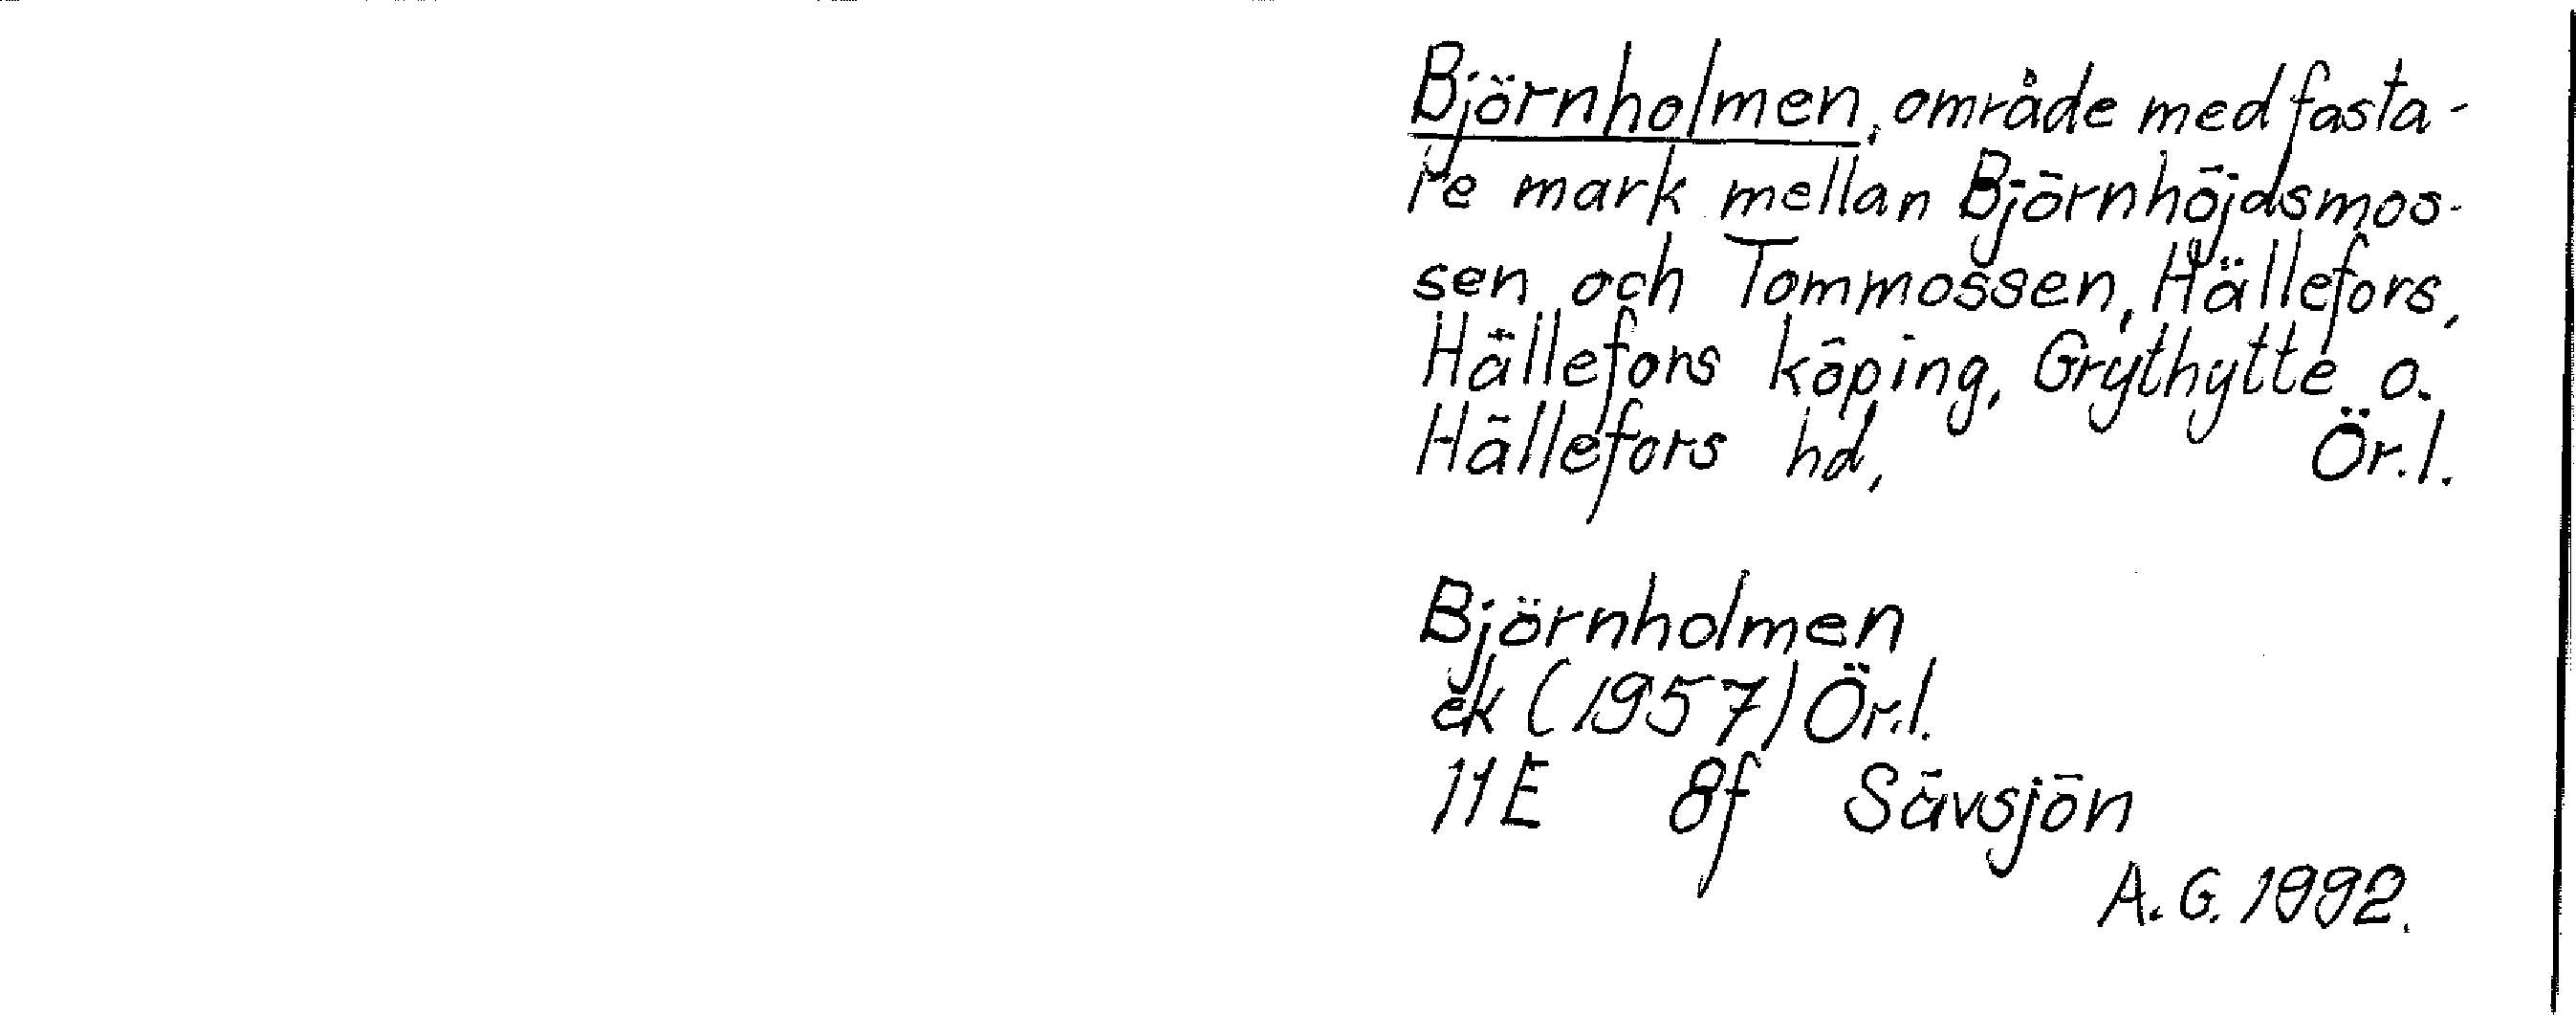 Björnholmen, område med fasta-
re mark mellan Björnhöjdsmos-
sen och Tommossen, Hällefors,
Hällefors köping, Grythytte o.
Hällefors hd, Ör.l.
Björnholmen
ek (1957) Ör.l.
11E 8f Sävsjön
A.G. 1992.